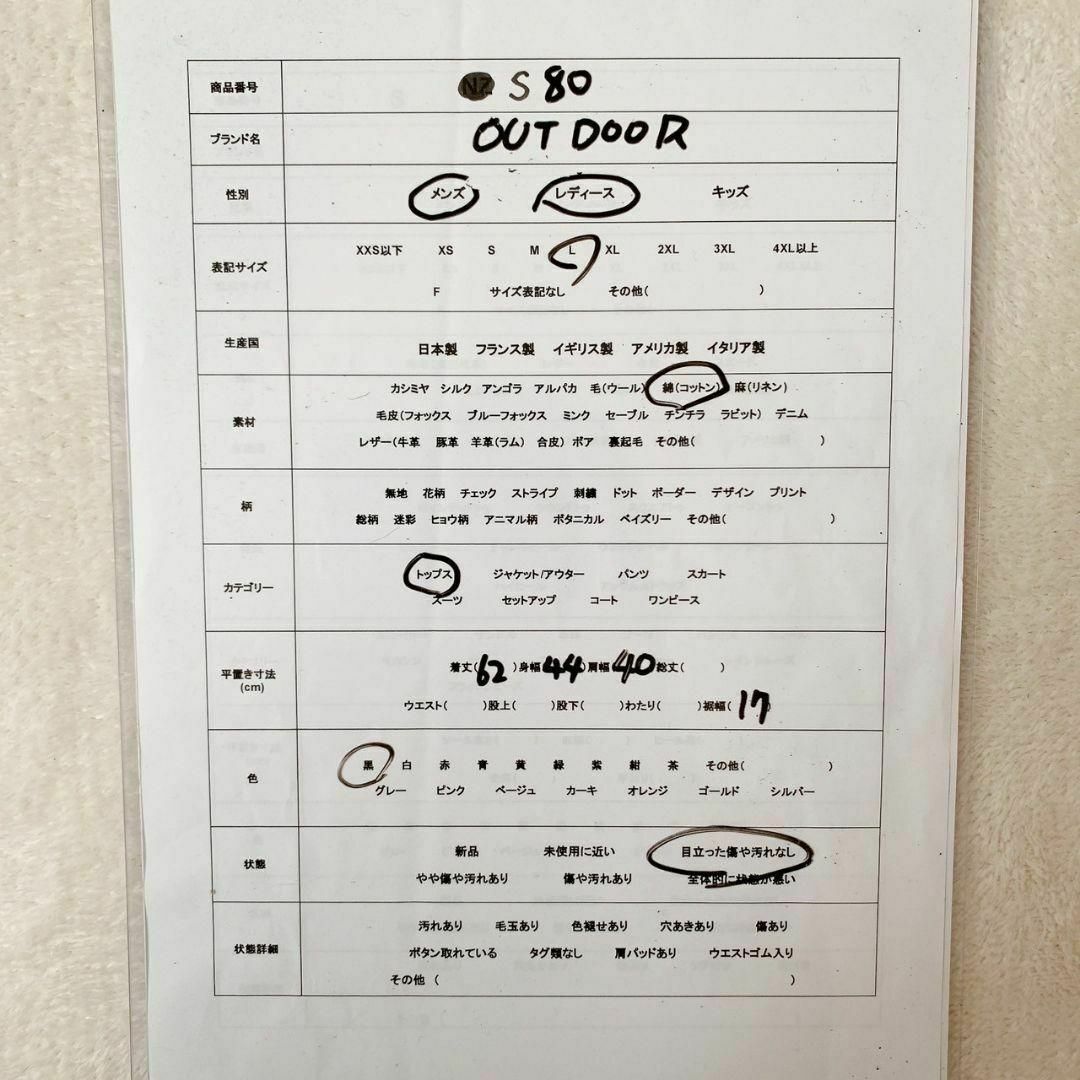 商品番号 NZ S 80
ブランド名 OUTDOOR
性別 メンズ レディース キッズ
XXS以下 XS S M L XL 2XL 3XL 4XL以上
表記サイズ
F サイズ表記なし その他( )
生産国 日本製 フランス製 イギリス製 アメリカ製 イタリア製
カシミヤ シルク アンゴラ アルパカ 毛(ウール) 綿(コットン) 麻(リネン)
素材 毛皮(フォックス ブルーフォックス ミンク セーブル チンチラ ラビット) デニム
レザー(牛革 豚革 羊革(ラム) 合皮) ボア 裏起毛 その他( )
無地 花柄 チェック ストライプ 刺繍 ドット ボーダー デザイン プリント
柄
総柄 迷彩 ヒョウ柄 アニマル柄 ボタニカル ペイズリー その他( )
トップス ジャケット/アウター パンツ スカート
カテゴリー
スーツ セットアップ コート ワンピース
着丈(62)身幅(44)肩幅(40)総丈( )
平置き寸法
(cm)
ウエスト( )股上( )股下( )わたり( )裾幅(17)
黒 白 赤 青 黄 緑 紫 紺 茶 その他( )
色
グレー ピンク ベージュ カーキ オレンジ ゴールド シルバー
新品 未使用に近い 目立った傷や汚れなし
状態
やや傷や汚れあり 傷や汚れあり 全体的に状態が悪い
汚れあり 毛玉あり 色褪せあり 穴あきあり 傷あり
状態詳細 ボタン取れている タグ類なし 肩パッドあり ウエストゴム入り
その他 ( )